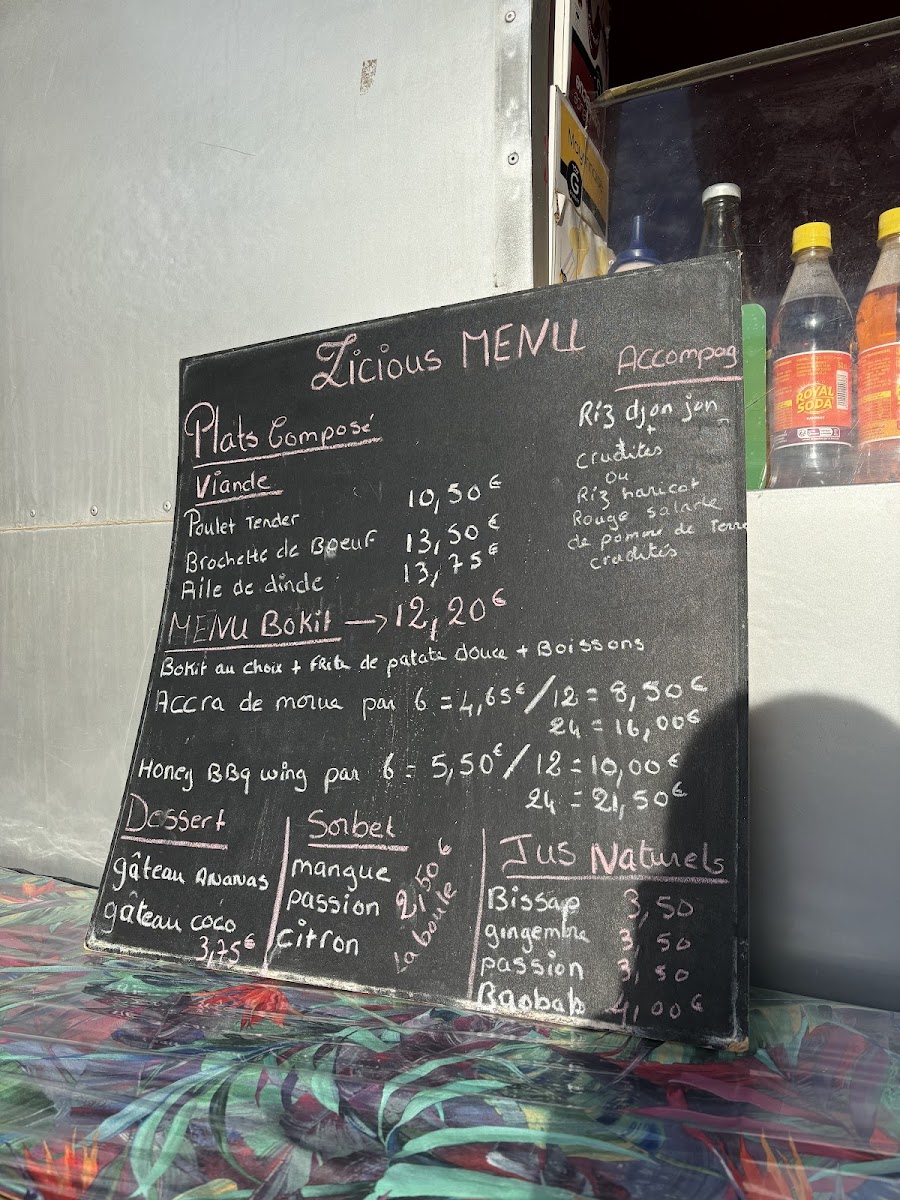 Zicious MENU
Accompag
Plats Composé
Viande
Poulet Tender 10,50€
Brochette de Boeuf 13,50€
Aile de dinde 13,75€
Riz djon jon
+
crudités
ou
Riz haricot
Rouge salade
de pomme de Terre
crudités
MENU Bokit → 12,20€
Bokit au choix + Frite de patate douce + Boissons
Accra de morue par 6 = 4,65€ / 12 = 8,50€
24 = 16,00€
Honey BBq wing par 6 = 5,50€ / 12 = 10,00€
24 = 21,50€
Dessert
gâteau ANANAS
gâteau coco
3,75€
Sorbet
mangue
passion
citron
2,50€
La boule
Jus Naturels
Bissap 3,50
gingembre 3,50
passion 3,50
Baobab 4,00€
ROYAL
SODA
ROYAL
SODA
G